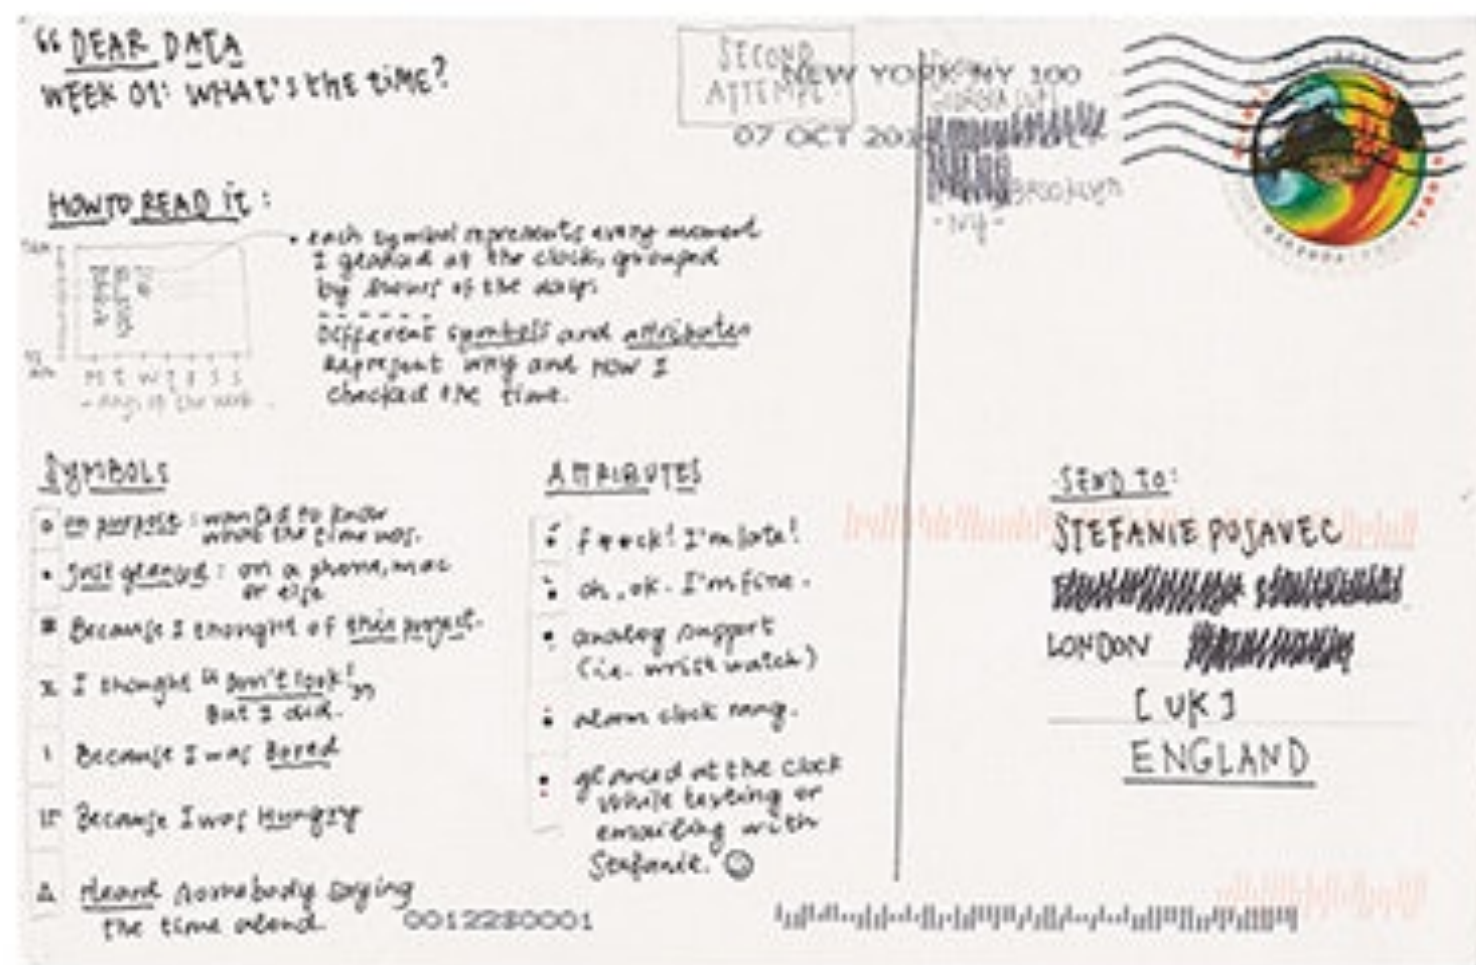 “ DEAR DATA
WEEK 01: WHAT'S the tiME?
SECOND
ATTEMPT
NEW YORK NY 100
07 OCT 201
BROOKLYN
- NY -
HOW TO READ it:
• each symbol represents every moment
I glanced at the clock, grouped
by hours of the day.
Different symbols and attributes
represent why and how I
checked the time.
M T W T F S S
- days of the week
SYMBOLS
on purpose: wanted to know
what the time was.
just glanced: on a phone, mac
or else
Because I thought of this project.
x I thought “don't look!”
But I did.
Because I was Bored
Because I was Hungry
Δ Heard somebody saying
the time aloud.
ATTRIBUTES
f**ck! I'm late!
oh, ok. I'm fine.
analog support
(i.e. wrist watch)
alarm clock rang.
glanced at the clock
while texting or
emailing with
Stefanie. ☺
SEND TO:
STEFANIE POSAVEC
LONDON
[UK]
ENGLAND